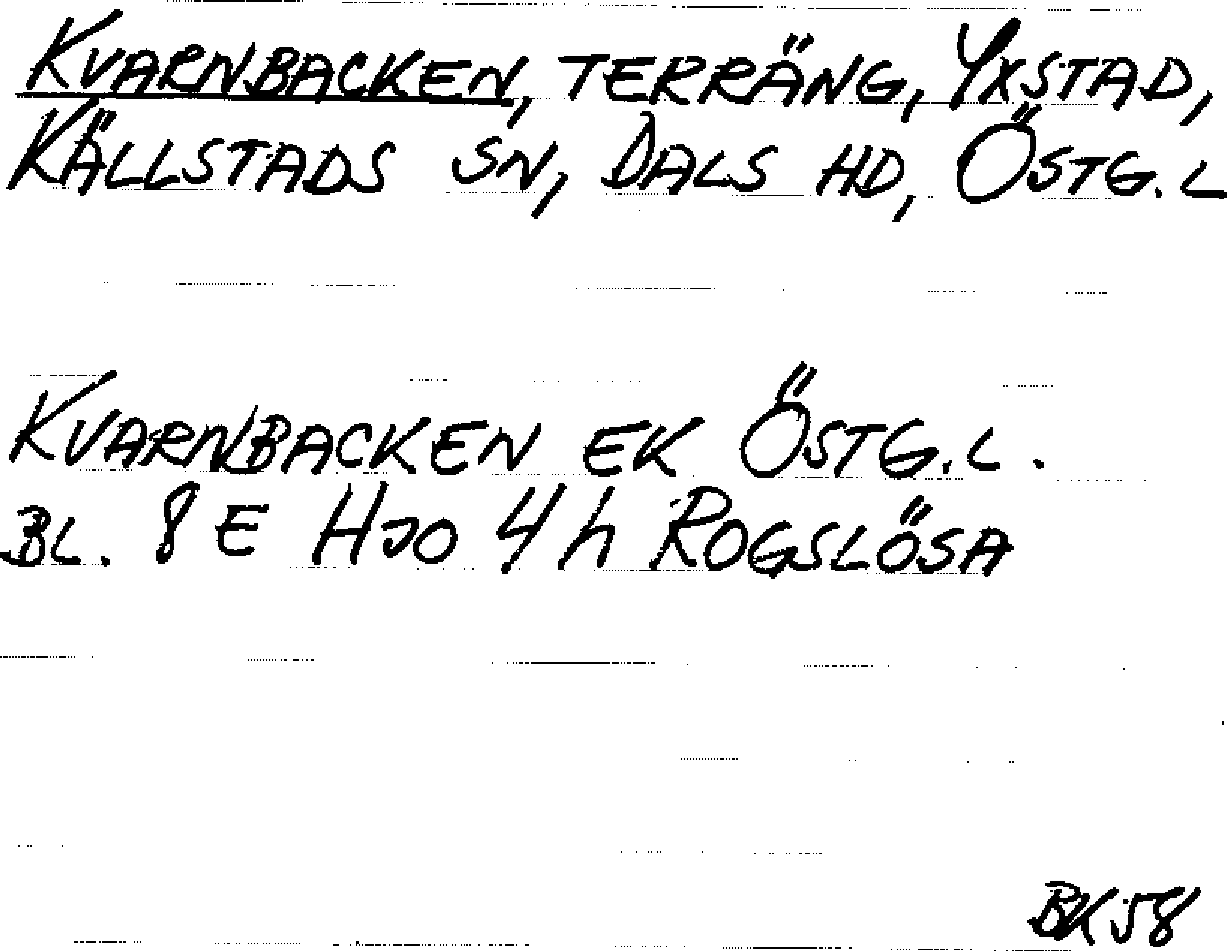 KVARNBACKEN, TERRÄNG, YXSTAD,
KÄLLSTADS SN, DALS HD, ÖSTG. L
KVARNBACKEN EK ÖSTG. L.
BL. 8 E HJO 4 h ROGSLÖSA
BK 58